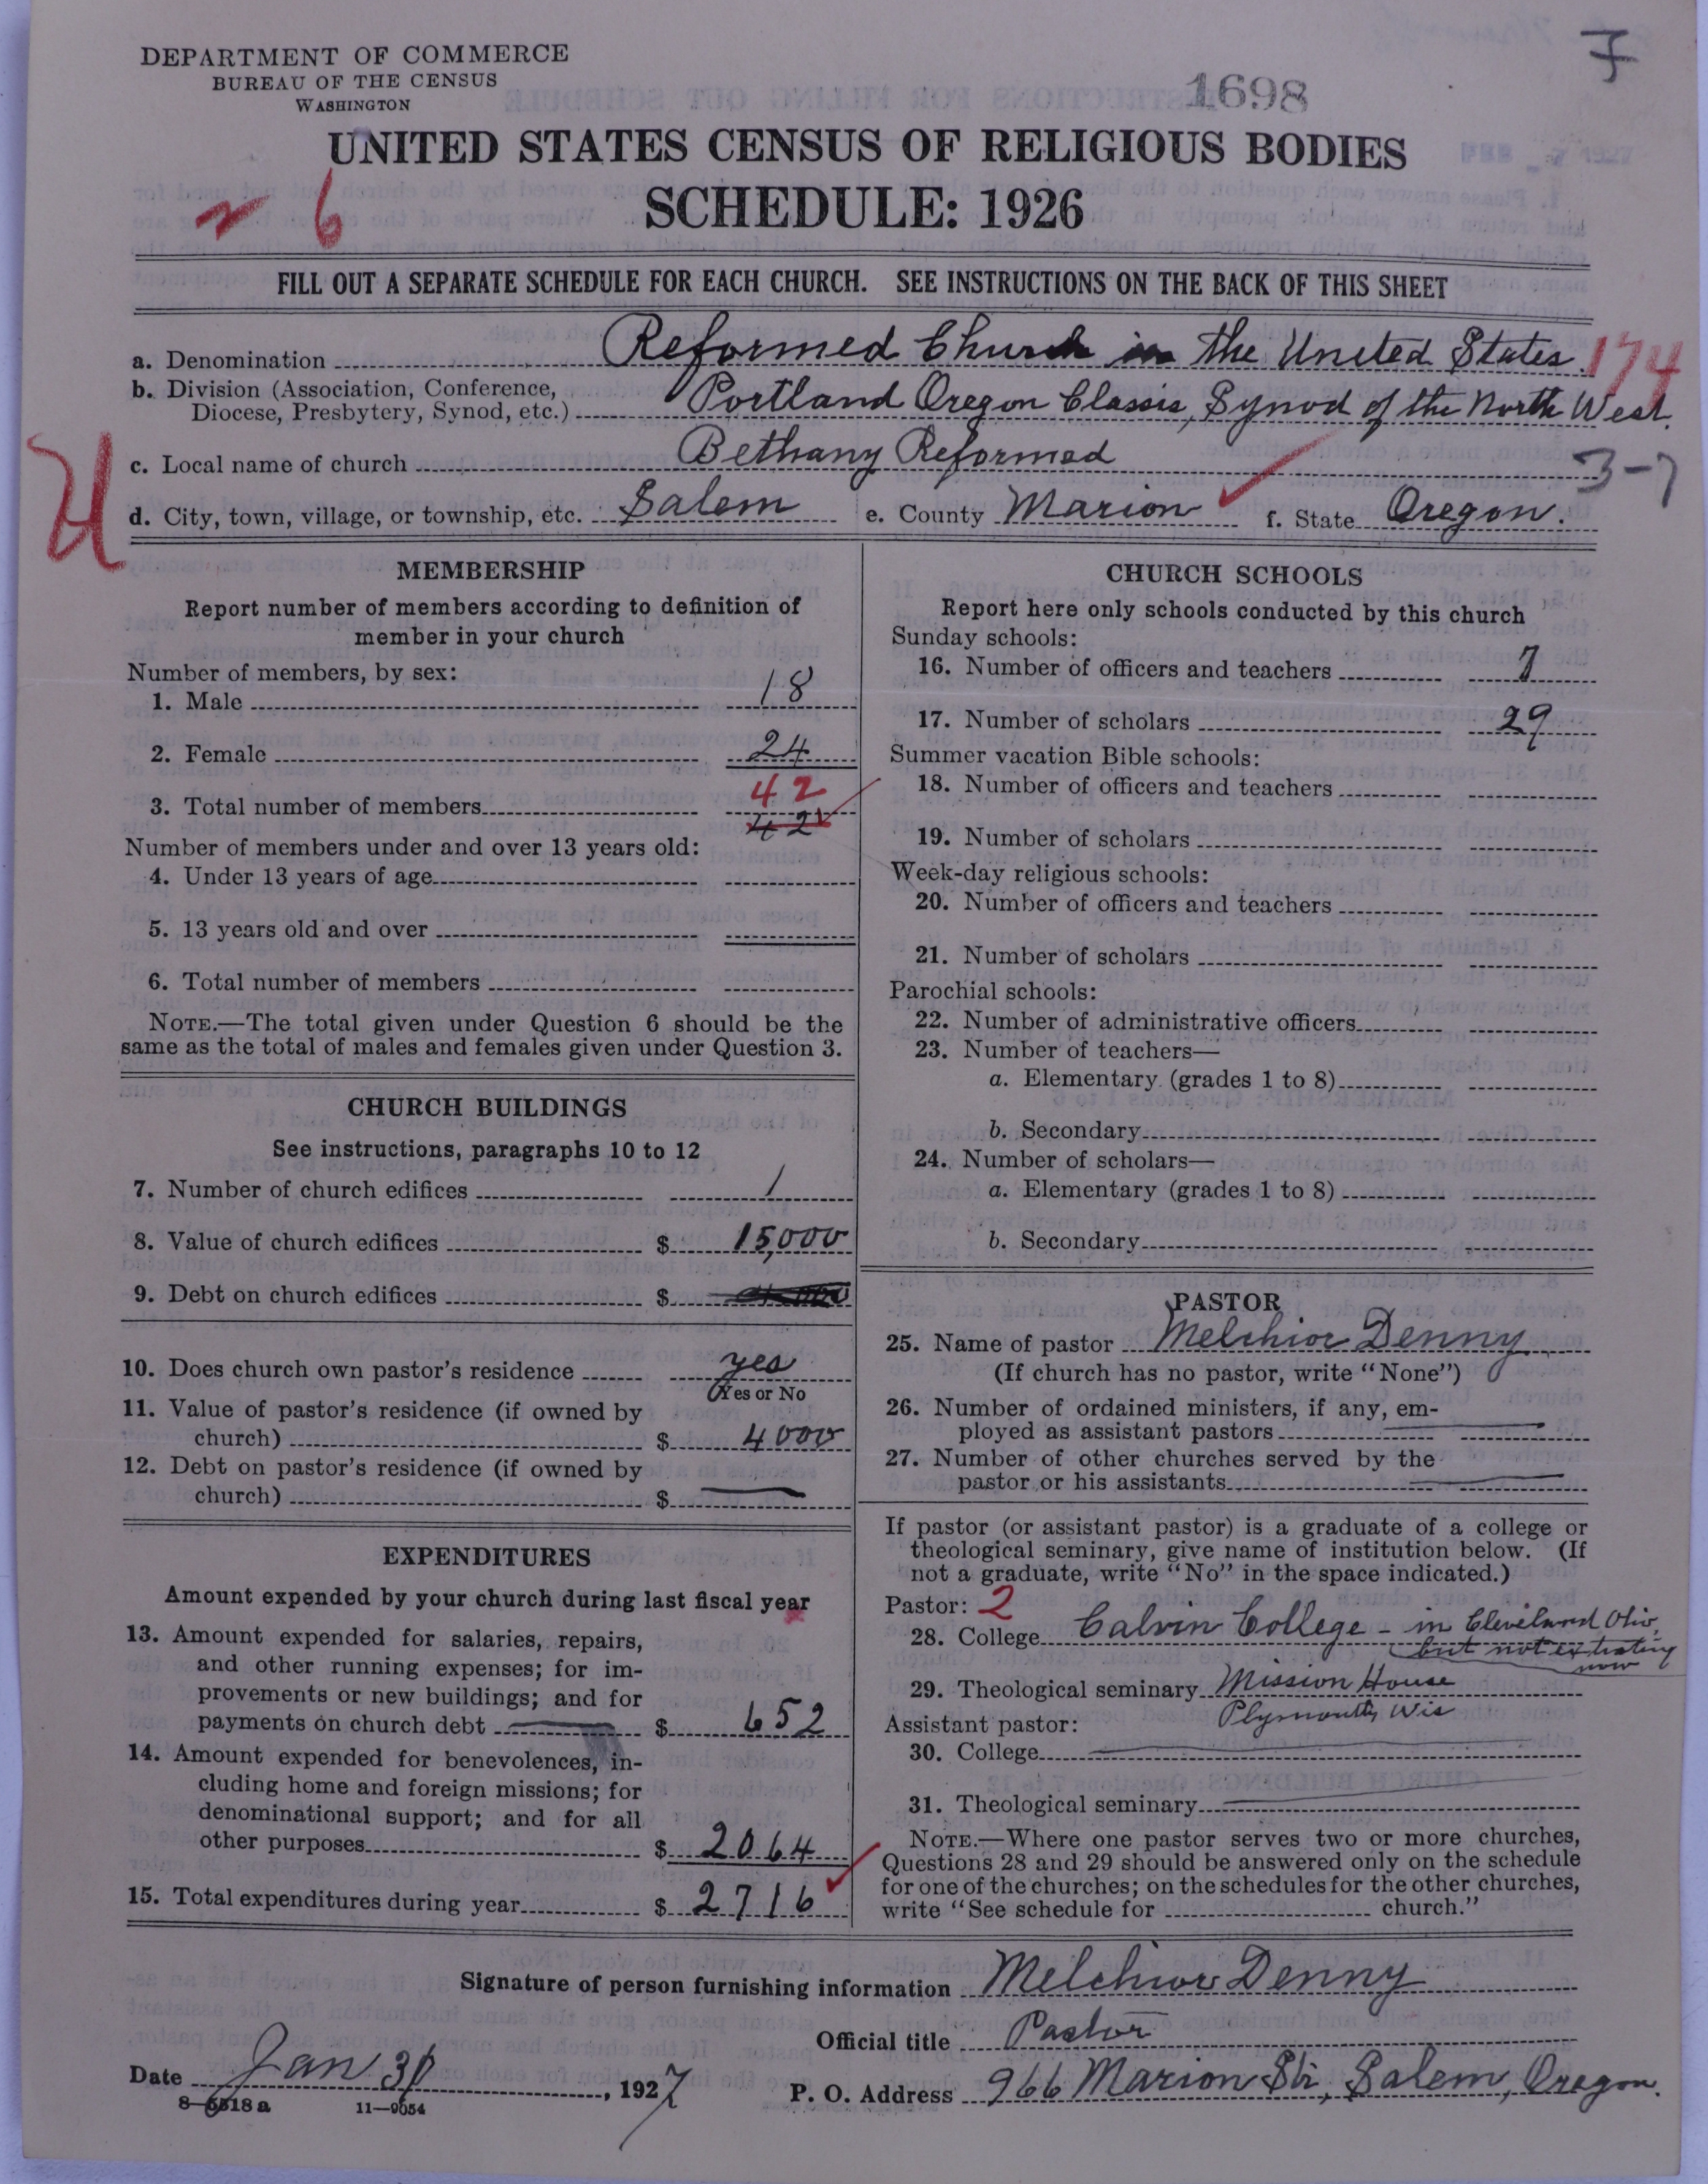 DEPARTMENT OF COMMERCE
BUREAU OF THE CENSUS
WASHINGTON
1698
7
UNITED STATES CENSUS OF RELIGIOUS BODIES
SCHEDULE: 1926
6
FILL OUT A SEPARATE SCHEDULE FOR EACH CHURCH. SEE INSTRUCTIONS ON THE BACK OF THIS SHEET
a. Denomination Reformed Church in the United States. 174
b. Division (Association, Conference,
Diocese, Presbytery, Synod, etc.) Portland Oregon Classis, Synod of the North West.
c. Local name of church Bethany Reformed
3-7
d. City, town, village, or township, etc. Salem e. County Marion f. State Oregon.
MEMBERSHIP
Report number of members according to definition of
member in your church
Number of members, by sex:
1. Male 18
2. Female 24
42
3. Total number of members 42
Number of members under and over 13 years old:
4. Under 13 years of age
5. 13 years old and over
6. Total number of members
NOTE.—The total given under Question 6 should be the
same as the total of males and females given under Question 3.
CHURCH BUILDINGS
See instructions, paragraphs 10 to 12
7. Number of church edifices 1
8. Value of church edifices $ 15,000
9. Debt on church edifices $
10. Does church own pastor's residence yes
Yes or No
11. Value of pastor's residence (if owned by
church) $ 4000
12. Debt on pastor's residence (if owned by
church) $ —
EXPENDITURES
Amount expended by your church during last fiscal year
13. Amount expended for salaries, repairs,
and other running expenses; for im-
provements or new buildings; and for
payments on church debt $ 652
14. Amount expended for benevolences, in-
cluding home and foreign missions; for
denominational support; and for all
other purposes $ 2064
15. Total expenditures during year $ 2716
CHURCH SCHOOLS
Report here only schools conducted by this church
Sunday schools:
16. Number of officers and teachers 7
17. Number of scholars 29
Summer vacation Bible schools:
18. Number of officers and teachers
19. Number of scholars
Week-day religious schools:
20. Number of officers and teachers
21. Number of scholars
Parochial schools:
22. Number of administrative officers
23. Number of teachers—
a. Elementary (grades 1 to 8)
b. Secondary
24. Number of scholars—
a. Elementary (grades 1 to 8)
b. Secondary
PASTOR
25. Name of pastor Melchior Denny
(If church has no pastor, write "None")
26. Number of ordained ministers, if any, em-
ployed as assistant pastors —
27. Number of other churches served by the
pastor or his assistants —
If pastor (or assistant pastor) is a graduate of a college or
theological seminary, give name of institution below. (If
not a graduate, write "No" in the space indicated.)
Pastor: 2
28. College Calvin College - in Cleveland Ohio,
but not existing
now
29. Theological seminary Mission House
Plymouth, Wis
Assistant pastor:
30. College —
31. Theological seminary —
NOTE.—Where one pastor serves two or more churches,
Questions 28 and 29 should be answered only on the schedule
for one of the churches; on the schedules for the other churches,
write "See schedule for church."
Signature of person furnishing information Melchior Denny
Official title Pastor
Date Jan 30, 1927
P. O. Address 966 Marion Str, Salem, Oregon.
8—5518 a 11—9054